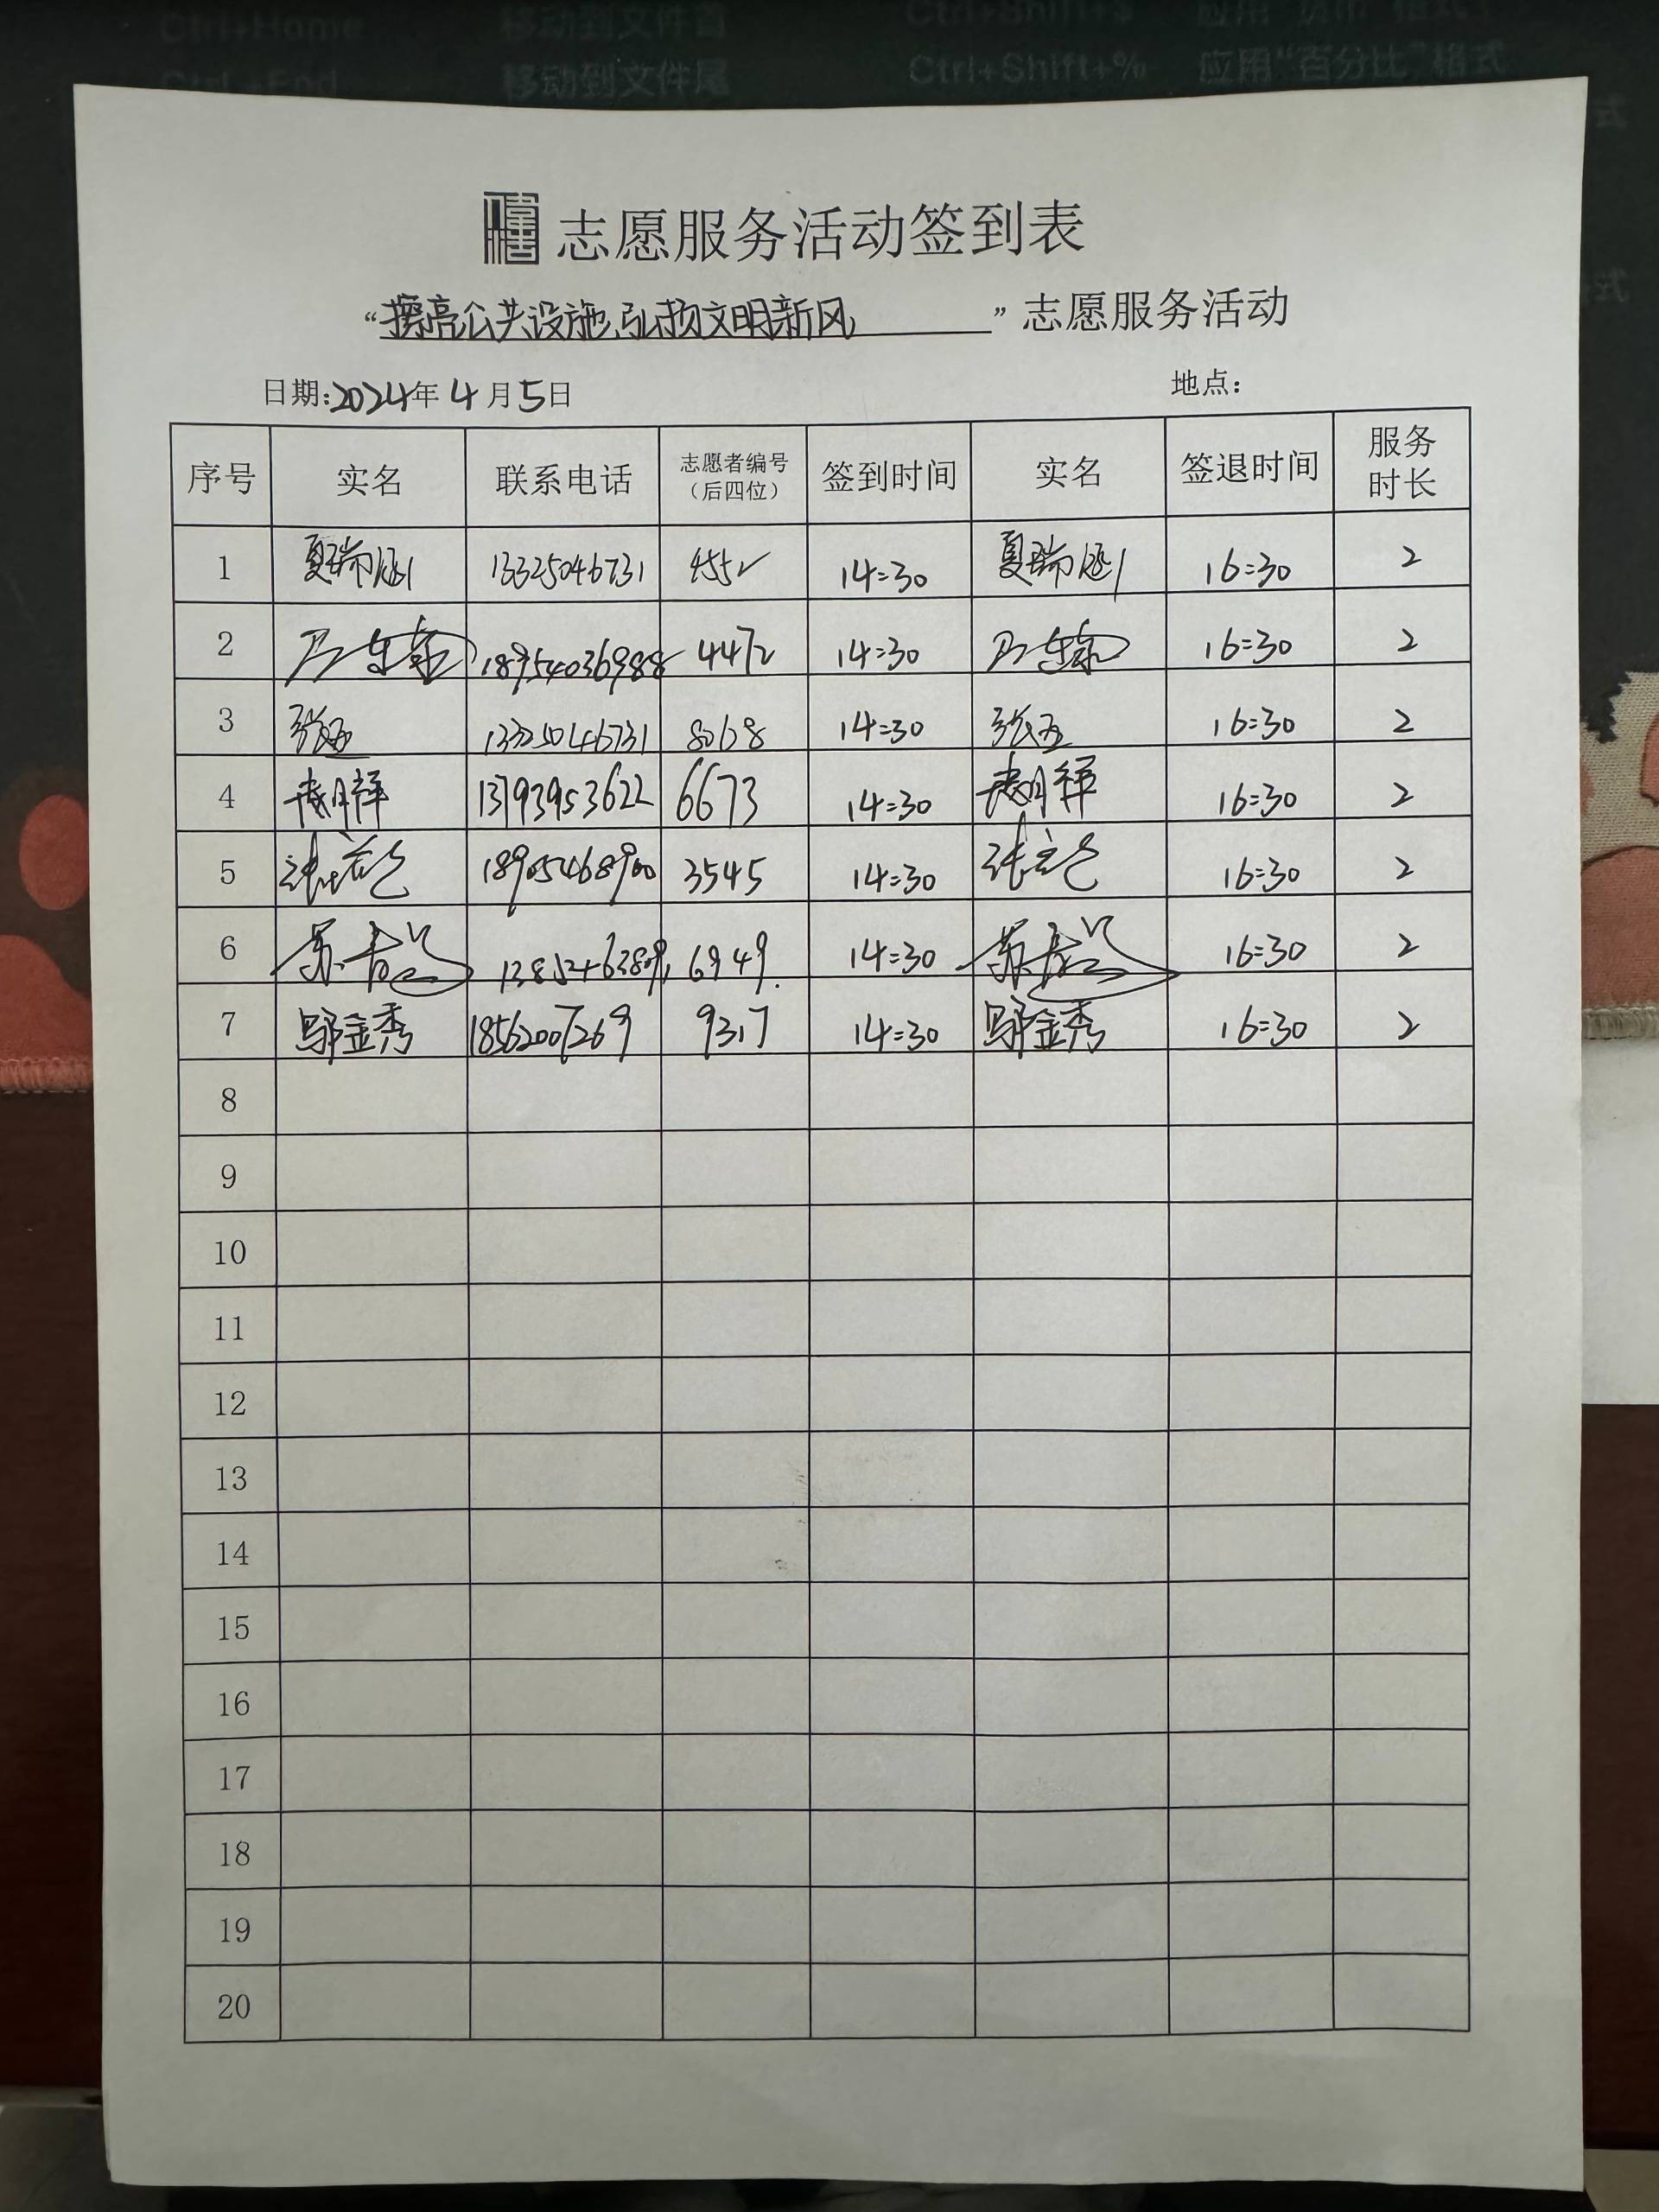 Ctrl+Home 移动到文件首
移动到文件尾 Ctrl+Shift+% 应用“百分比”格式
志愿服务活动签到表
“擦亮公共设施,弘扬文明新风” 志愿服务活动
日期:2024年4月5日 地点:
序号 实名 联系电话 志愿者编号(后四位) 签到时间 实名 签退时间 服务时长
1 夏瑞 13325046731 4552 14:30 夏瑞 16:30 2
2 18954036988 4472 14:30 16:30 2
3 13325046731 8068 14:30 16:30 2
4 13793953622 6673 14:30 16:30 2
5 18905468900 3545 14:30 16:30 2
6 6949 14:30 16:30 2
7 邬金秀 18562007269 9317 14:30 邬金秀 16:30 2
8
9
10
11
12
13
14
15
16
17
18
19
20